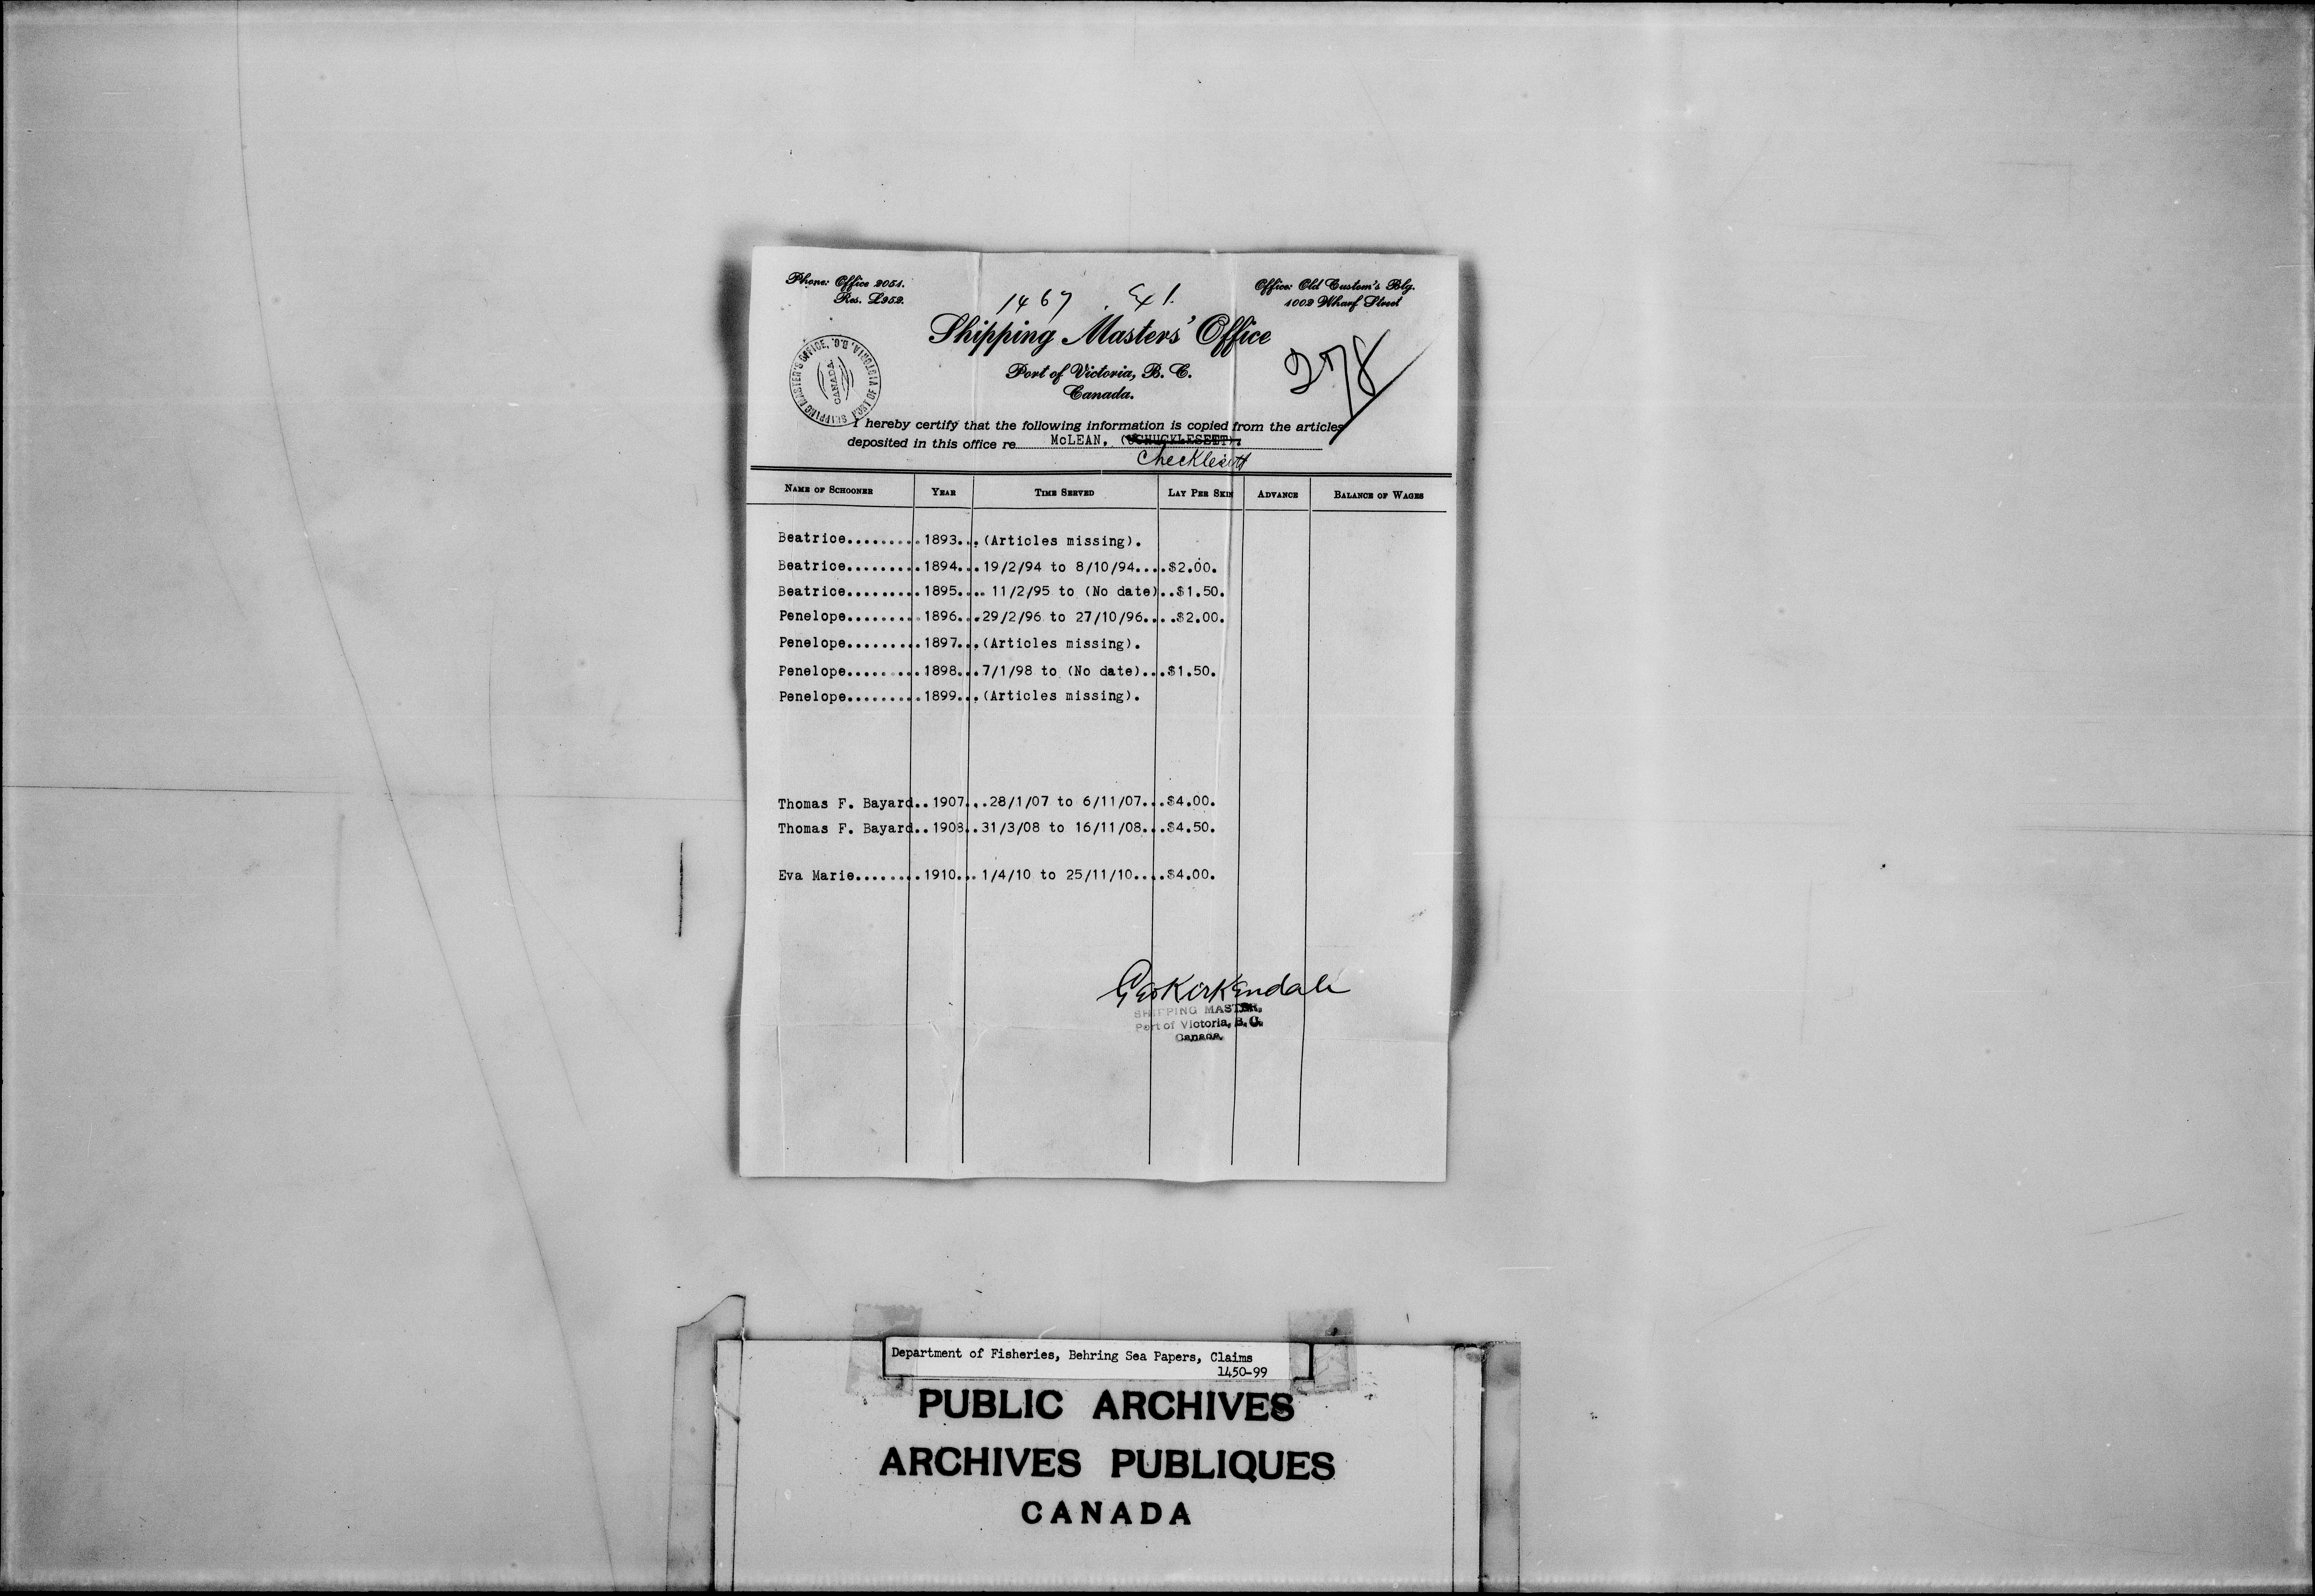 Phone: Office 2051.
Res. L952.
Office: Old Custom's Blg.
1002 Wharf Street
1467 Ex 1.
Shipping Masters' Office
Port of Victoria, B. C.
Canada.
278
SHIPPING MASTER'S OFFICE, PORT OF VICTORIA, B.C.
CANADA
I hereby certify that the following information is copied from the articles
deposited in this office re McLEAN, (UCHUCKLESETT).
Checklesett
NAME OF SCHOONER YEAR TIME SERVED LAY PER SKIN ADVANCE BALANCE OF WAGES
Beatrice.........1893...(Articles missing).
Beatrice.........1894...19/2/94 to 8/10/94....$2.00.
Beatrice.........1895.... 11/2/95 to (No date)..$1.50.
Penelope.........1896...29/2/96 to 27/10/96....$2.00.
Penelope.........1897...(Articles missing).
Penelope.........1898...7/1/98 to (No date)...$1.50.
Penelope.........1899...(Articles missing).
Thomas F. Bayard..1907...28/1/07 to 6/11/07...$4.00.
Thomas F. Bayard..1908..31/3/08 to 16/11/08...$4.50.
Eva Marie........1910...1/4/10 to 25/11/10....$4.00.
Geo Kirkendale
SHIPPING MASTER,
Port of Victoria, B. C.
Canada.
Department of Fisheries, Behring Sea Papers, Claims
1450-99
PUBLIC ARCHIVES
ARCHIVES PUBLIQUES
CANADA